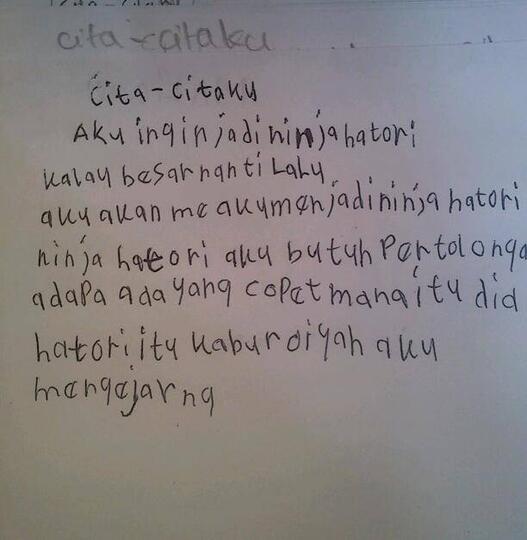 cita-citaku
Cita-citaku
Aku ingin jadi ninja hatori
kalau besar nanti Lalu
aku akan me aku menjadi ninja hatori
ninja hatori aku butuh Pertolonga
adapa ada yang copet mana itu dia
hatori itu kabur oiyah aku
mengejarng